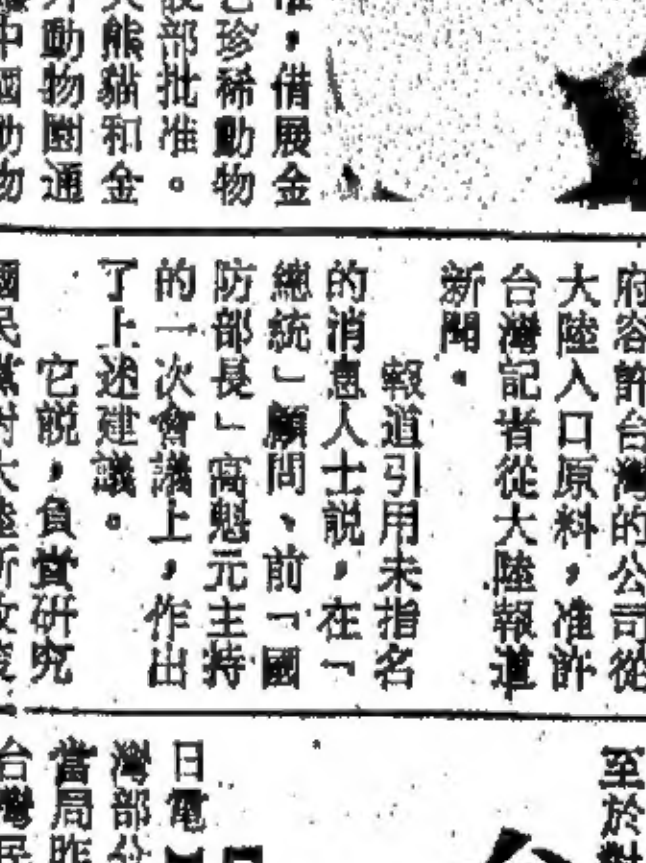 准，借展金
珍稀動物
設部批准。
大熊貓和金
外動物園通
中國動物
府容許台灣的公司從
大陸入口原料，准許
台灣記者從大陸報道
新聞。
報道引用未指名
的消息人士說，在「
總統」顧問、前「國
防部長」高魁元主持
的一次會議上，作出
了上述建議。
它說，負責研究
國民黨對大陸所政
至於對
日電
灣部分
當局昨
台灣民